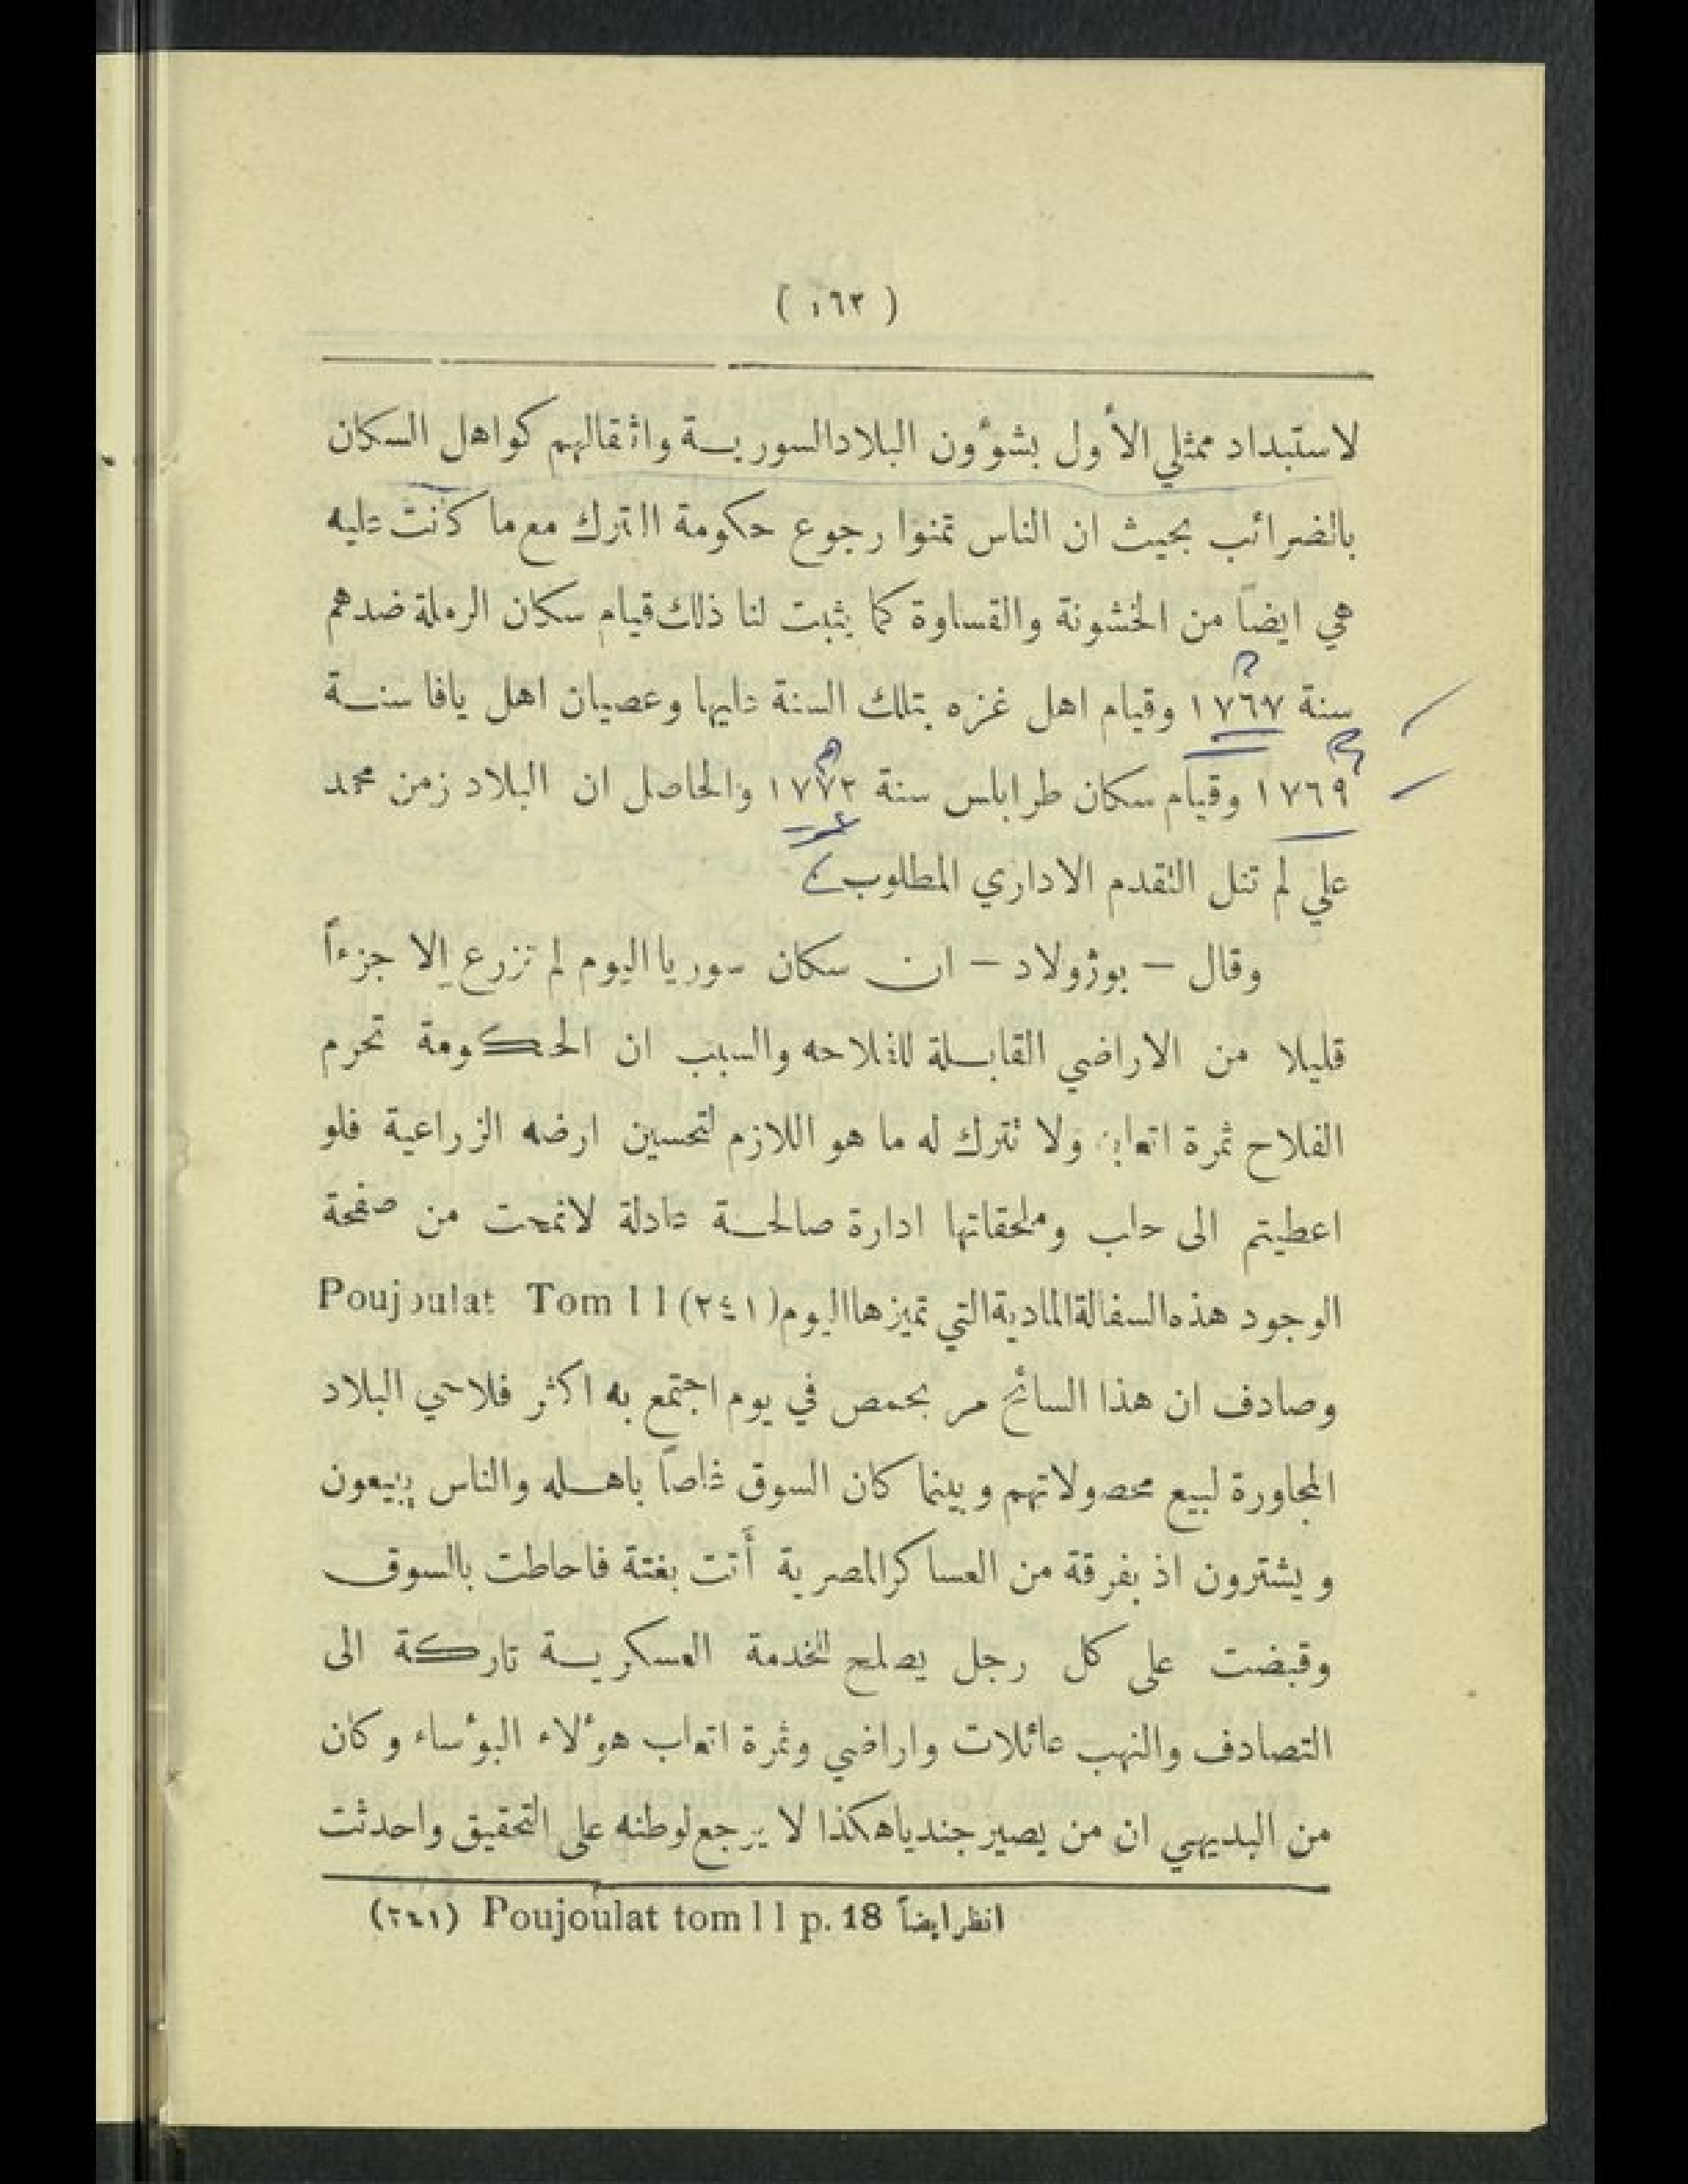 ( ١٦٣ )
لاستبداد ممثلي الأول بشؤون البلاد السورية واثقالهم كواهل السكان
بالضرائب بحيث ان الناس تمنوا رجوع حكومة الترك مع ما كانت عليه
هي ايضاً من الخشونة والقساوة كما يثبت لنا ذلك قيام سكان الرملة ضدهم
سنة ١٧٦٧ وقيام اهل غزه بتلك السنة عليها وعصيان اهل يافا سنة
١٧٦٩ وقيام سكان طرابلس سنة ١٧٧٢ والحاصل ان البلاد زمن محمد
علي لم تنل التقدم الاداري المطلوب
وقال — بوژولاد — ان سكان سوريا اليوم لم تزرع إلا جزءاً
قليلا من الاراضي القابلة للفلاحه والسبب ان الحكومة تحرم
الفلاح ثمرة اتعابه ولا تترك له ما هو اللازم لتحسين ارضه الزراعية فلو
اعطيتم الى حلب وملحقاتها ادارة صالحة عادلة لانمحت من صفحة
الوجود هذه السفالة المادية التي تميزها اليوم (٢٤١) Poujoulat Tom l l
وصادف ان هذا السائح مر بحمص في يوم اجتمع به اكثر فلاحي البلاد
المجاورة لبيع محصولاتهم وبينما كان السوق غاصاً باهله والناس يبيعون
ويشترون اذ بفرقة من العساكر المصرية أتت بغتة فاحاطت بالسوق
وقبضت على كل رجل يصلح للخدمة العسكرية تاركة الى
التصادف والنهب عائلات واراضي وثمرة اتعاب هؤلاء البؤساء وكان
من البديهي ان من يصير جنديا هكذا لا يرجع لوطنه على التحقيق واحدثت
(٢٤١) Poujoulat tom l l p. 18 انظر ايضاً